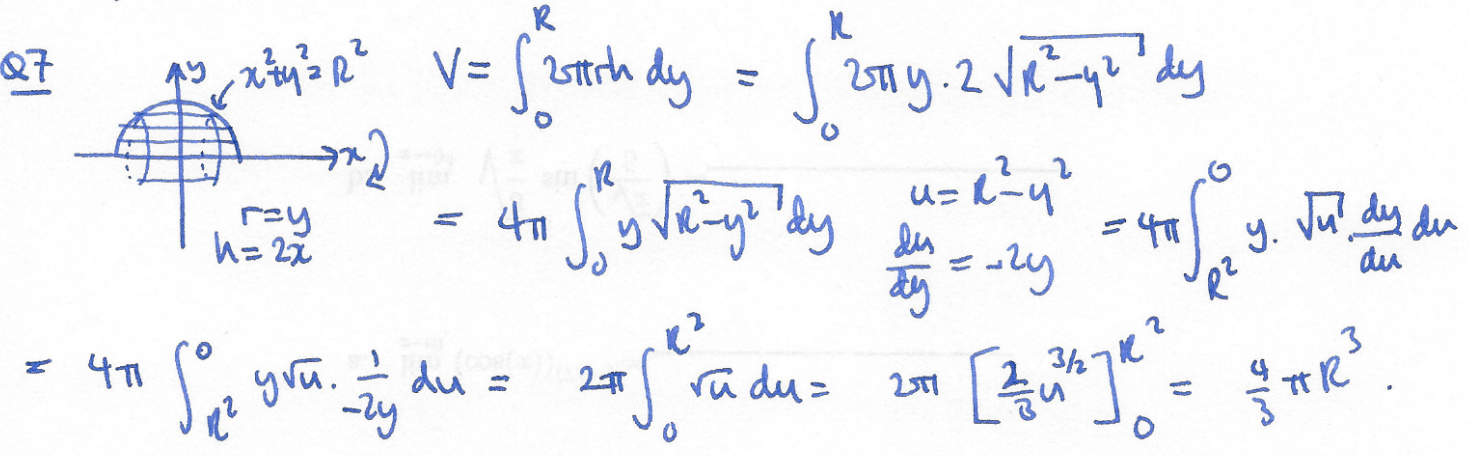 Q7 y x²+y²=R² V = ∫₀ᴿ 2πrh dy = ∫₀ᴿ 2πy·2√(R²−y²) dy
x
r=y
h=2x
= 4π ∫₀ᴿ y√(R²−y²) dy u=R²−y² du/dy = −2y = 4π ∫_{R²}^{0} y·√u·dy/du du
= 4π ∫_{R²}^{0} y√u·1/(−2y) du = 2π ∫₀^{R²} √u du = 2π [2/3 u^{3/2}]₀^{R²} = 4/3 πR³.